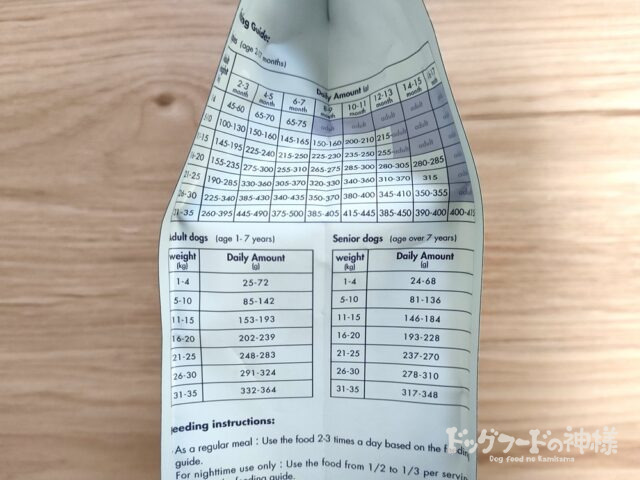 Guide:
(age 2-17 months)
Daily Amount (g)
2-3 month 4-5 month 6-7 month 10-11 month 12-13 month 14-15 month
45-60 65-70 65-75 adult adult adult adult
100-130 150-160 145-165 150-160 200-210 215-adult adult
145-195 225-240 215-250 225-230 235-250 255-adult adult
155-235 275-300 255-310 265-275 285-300 280-305 280-285
21-25 190-285 330-360 305-370 320-330 340-360 310-370 315
26-30 225-340 385-430 340-435 350-370 380-400 345-410 350-355
31-35 260-395 445-490 375-500 385-405 415-445 385-450 390-400 400-415
Adult dogs (age 1-7 years)
weight (kg) Daily Amount (g)
1-4 25-72
5-10 85-142
11-15 153-193
16-20 202-239
21-25 248-283
26-30 291-324
31-35 332-364
Senior dogs (age over 7 years)
weight (kg) Daily Amount (g)
1-4 24-68
5-10 81-136
11-15 146-184
16-20 193-228
21-25 237-270
26-30 278-310
31-35 317-348
eeding instructions:
As a regular meal : Use the food 2-3 times a day based on the feeding
guide.
For nighttime use only : Use the food from 1/2 to 1/3 per servin
feeding guide.
ドッグフードの神様
Dog food no Kamisama